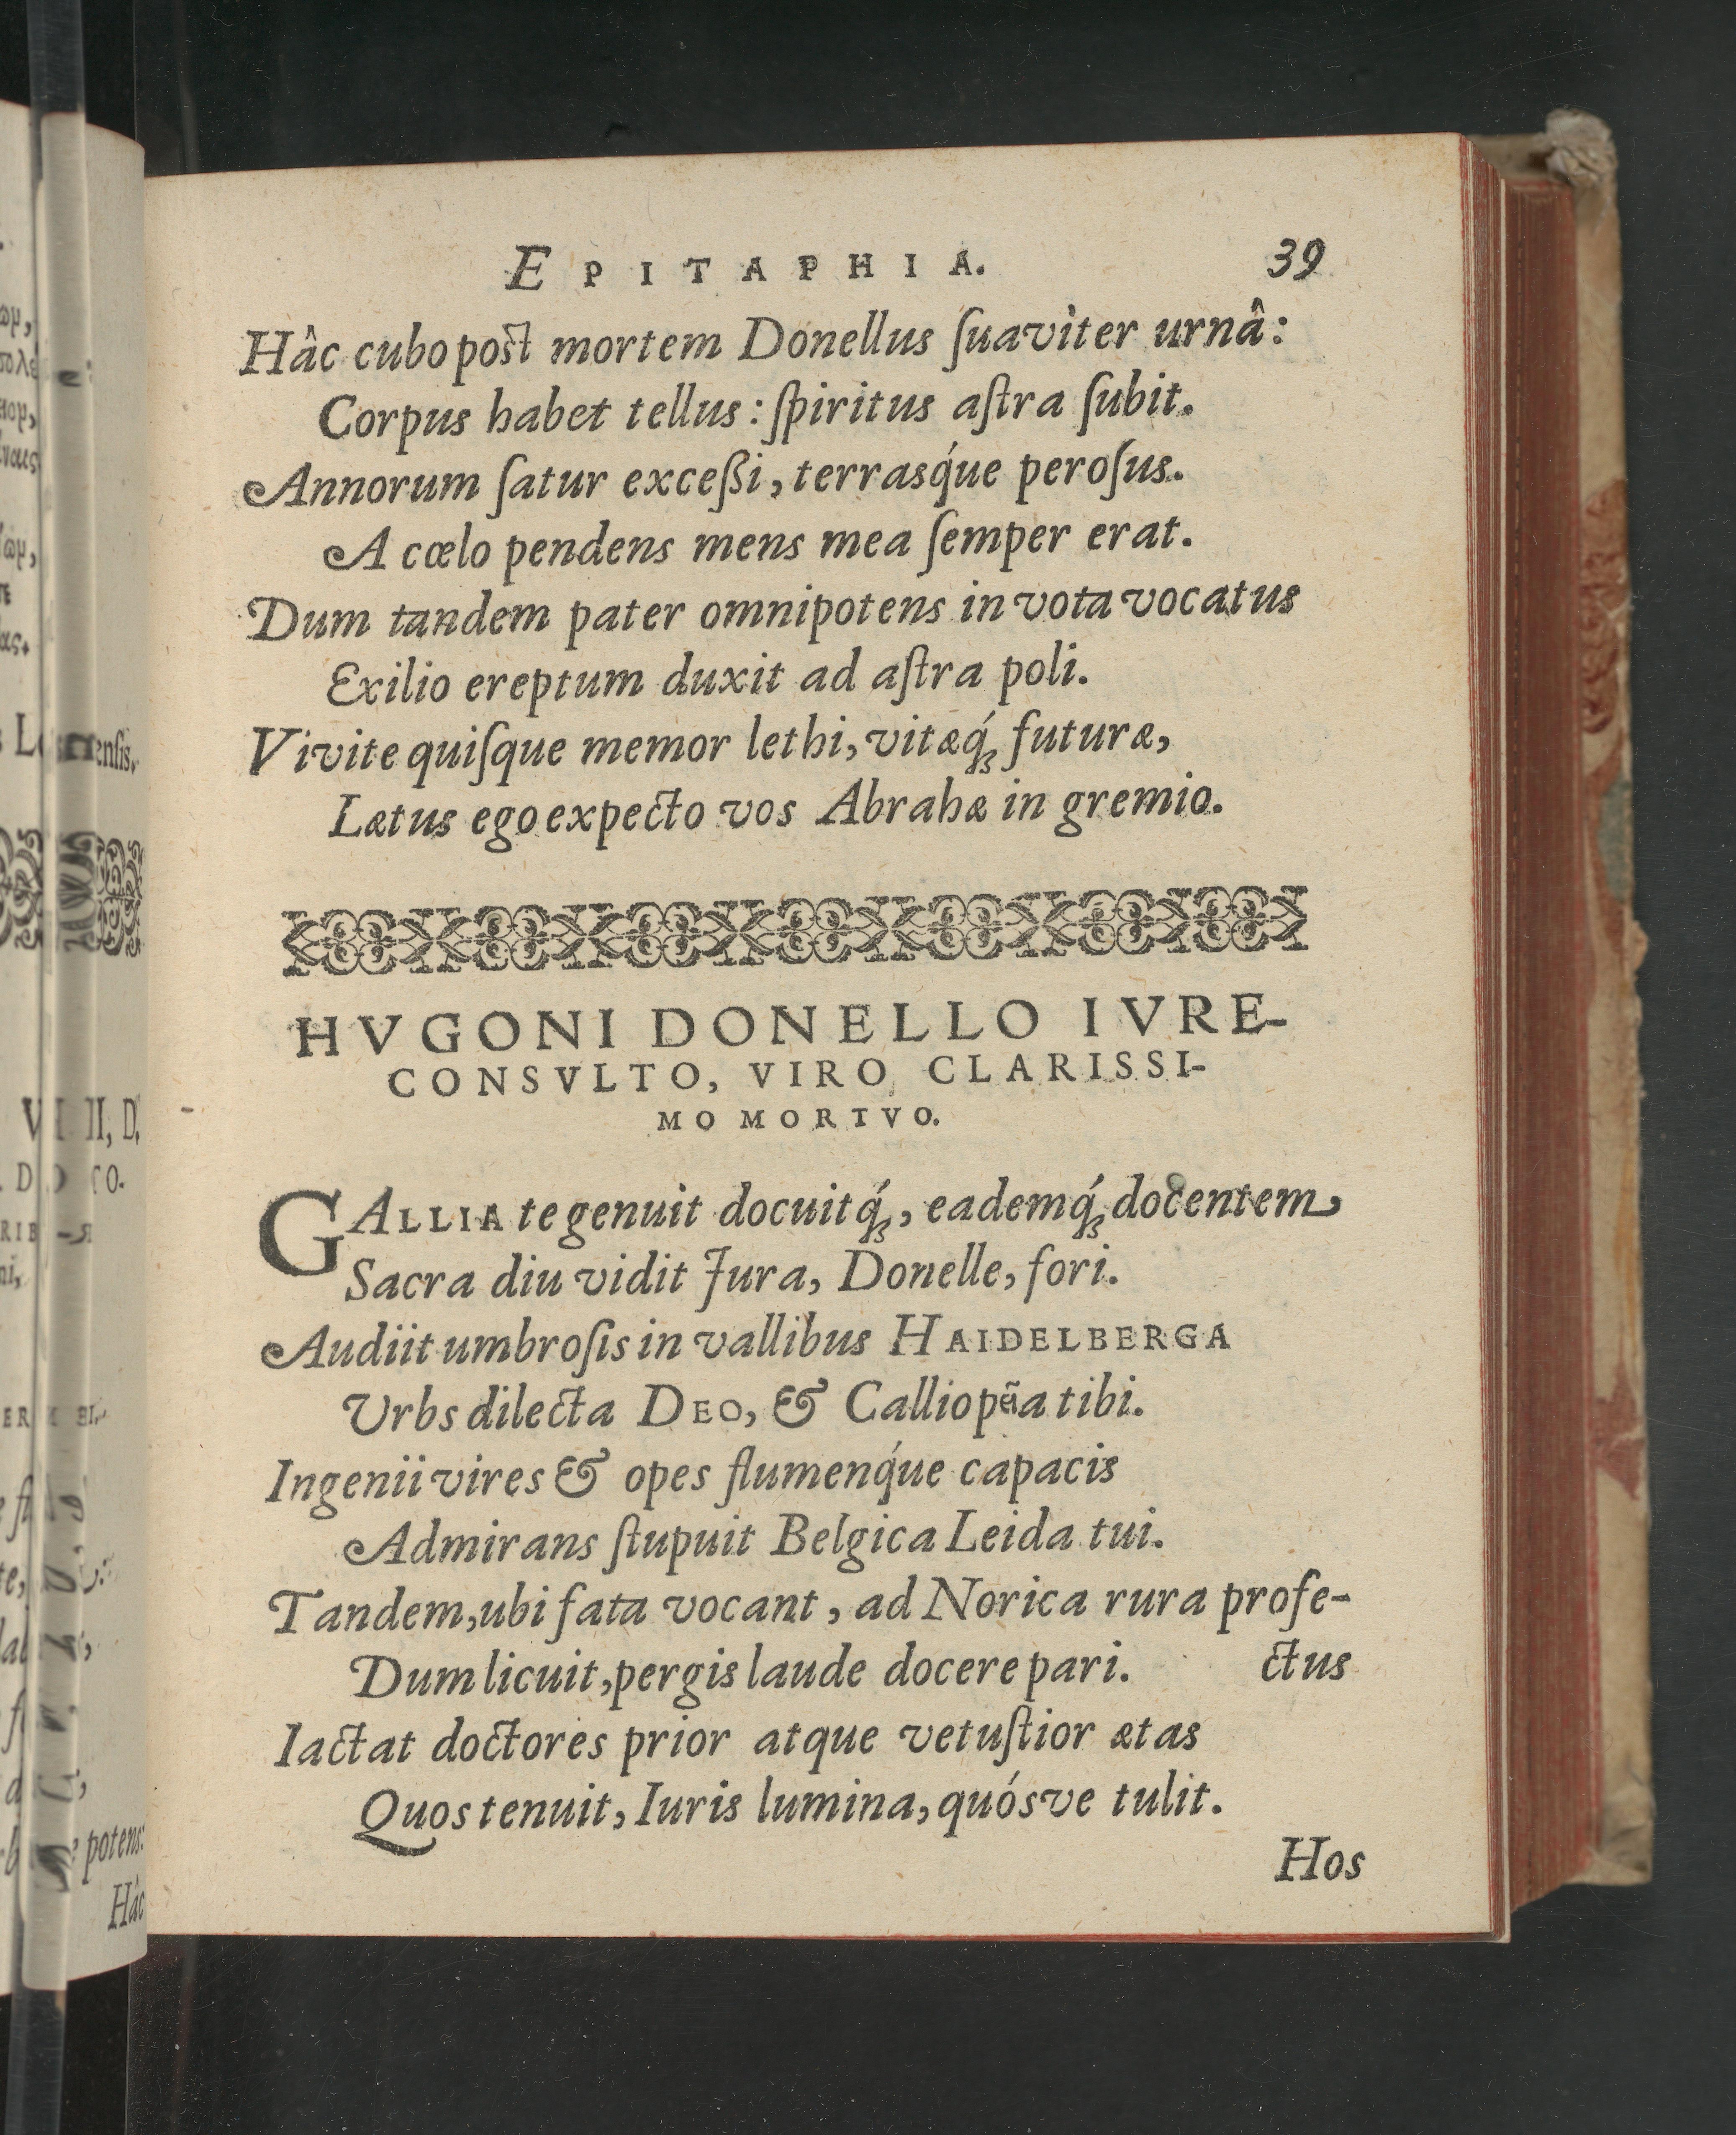 EPITAPHIA. 39
Hâc cubo post mortem Donellus ſuaviter urnâ:
Corpus habet tellus: ſpiritus aſtra ſubit.
Annorum ſatur exceßi, terrasq́ue peroſus.
A cœlo pendens mens mea ſemper erat.
Dum tandem pater omnipotens in vota vocatus
Exilio ereptum duxit ad aſtra poli.
Vivite quiſque memor lethi, vitæq́ꝫ futuræ,
Lætus ego expecto vos Abrahæ in gremio.
HVGONI DONELLO IVRE-
CONSVLTO, VIRO CLARISSI-
MO MORTVO.
GALLIA te genuit docuitq́ꝫ, eademq́ꝫ docentem
Sacra diu vidit Jura, Donelle, fori.
Audiit umbroſis in vallibus HAIDELBERGA
Vrbs dilecta DEO, & Calliopæ̃a tibi.
Ingenii vires & opes flumenq́ue capacis
Admirans ſtupuit Belgica Leida tui.
Tandem, ubi fata vocant, ad Norica rura profe-
Dum licuit, pergis laude docere pari. ctus
Iactat doctores prior atque vetuſtior ætas
Quos tenuit, Iuris lumina, quósve tulit.
Hos
potens:
Hâc